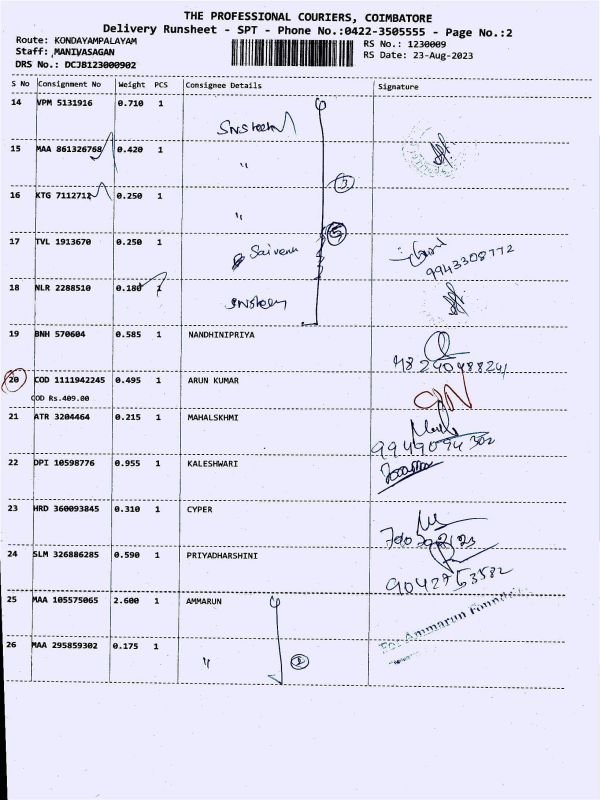 THE PROFESSIONAL COURIERS, COIMBATORE
Delivery Runsheet - SPT - Phone No.:0422-3505555 - Page No.:2
Route: KONDAYAMPALAYAM
RS No.: 1230009
Staff: MANIVASAGAN
RS Date: 23-Aug-2023
DRS No.: DCJB123000902
S No Consignment No Weight PCS Consignee Details Signature
14 VPM 5131916 0.710 1
15 MAA 861326768 0.420 1 "
16 KTG 7112712 0.250 1 "
17 TVL 1913670 0.250 1 Sai venu
9943308772
18 NLR 2288510 0.180 1
19 BNH 570604 0.585 1 NANDHINIPRIYA
20 COD 1111942245 0.495 1 ARUN KUMAR
COD Rs.409.00
21 ATR 3204464 0.215 1 MAHALSKHMI
9949094302
22 DPI 10598776 0.955 1 KALESHWARI
23 HRD 360093845 0.310 1 CYPER
24 SLM 326886285 0.590 1 PRIYADHARSHINI
9042753582
25 MAA 105575065 2.600 1 AMMARUN
For Ammarun Foundr
26 MAA 295859302 0.175 1 " 2